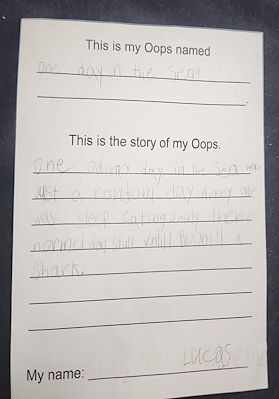 This is my Oops named
one day in the Sea!!
This is the story of my Oops.
One odinary day in the Sea was
just a random day
was sleep eating doing there
normel day stuff untill BOOM!! a
shark.
My name: Lucas